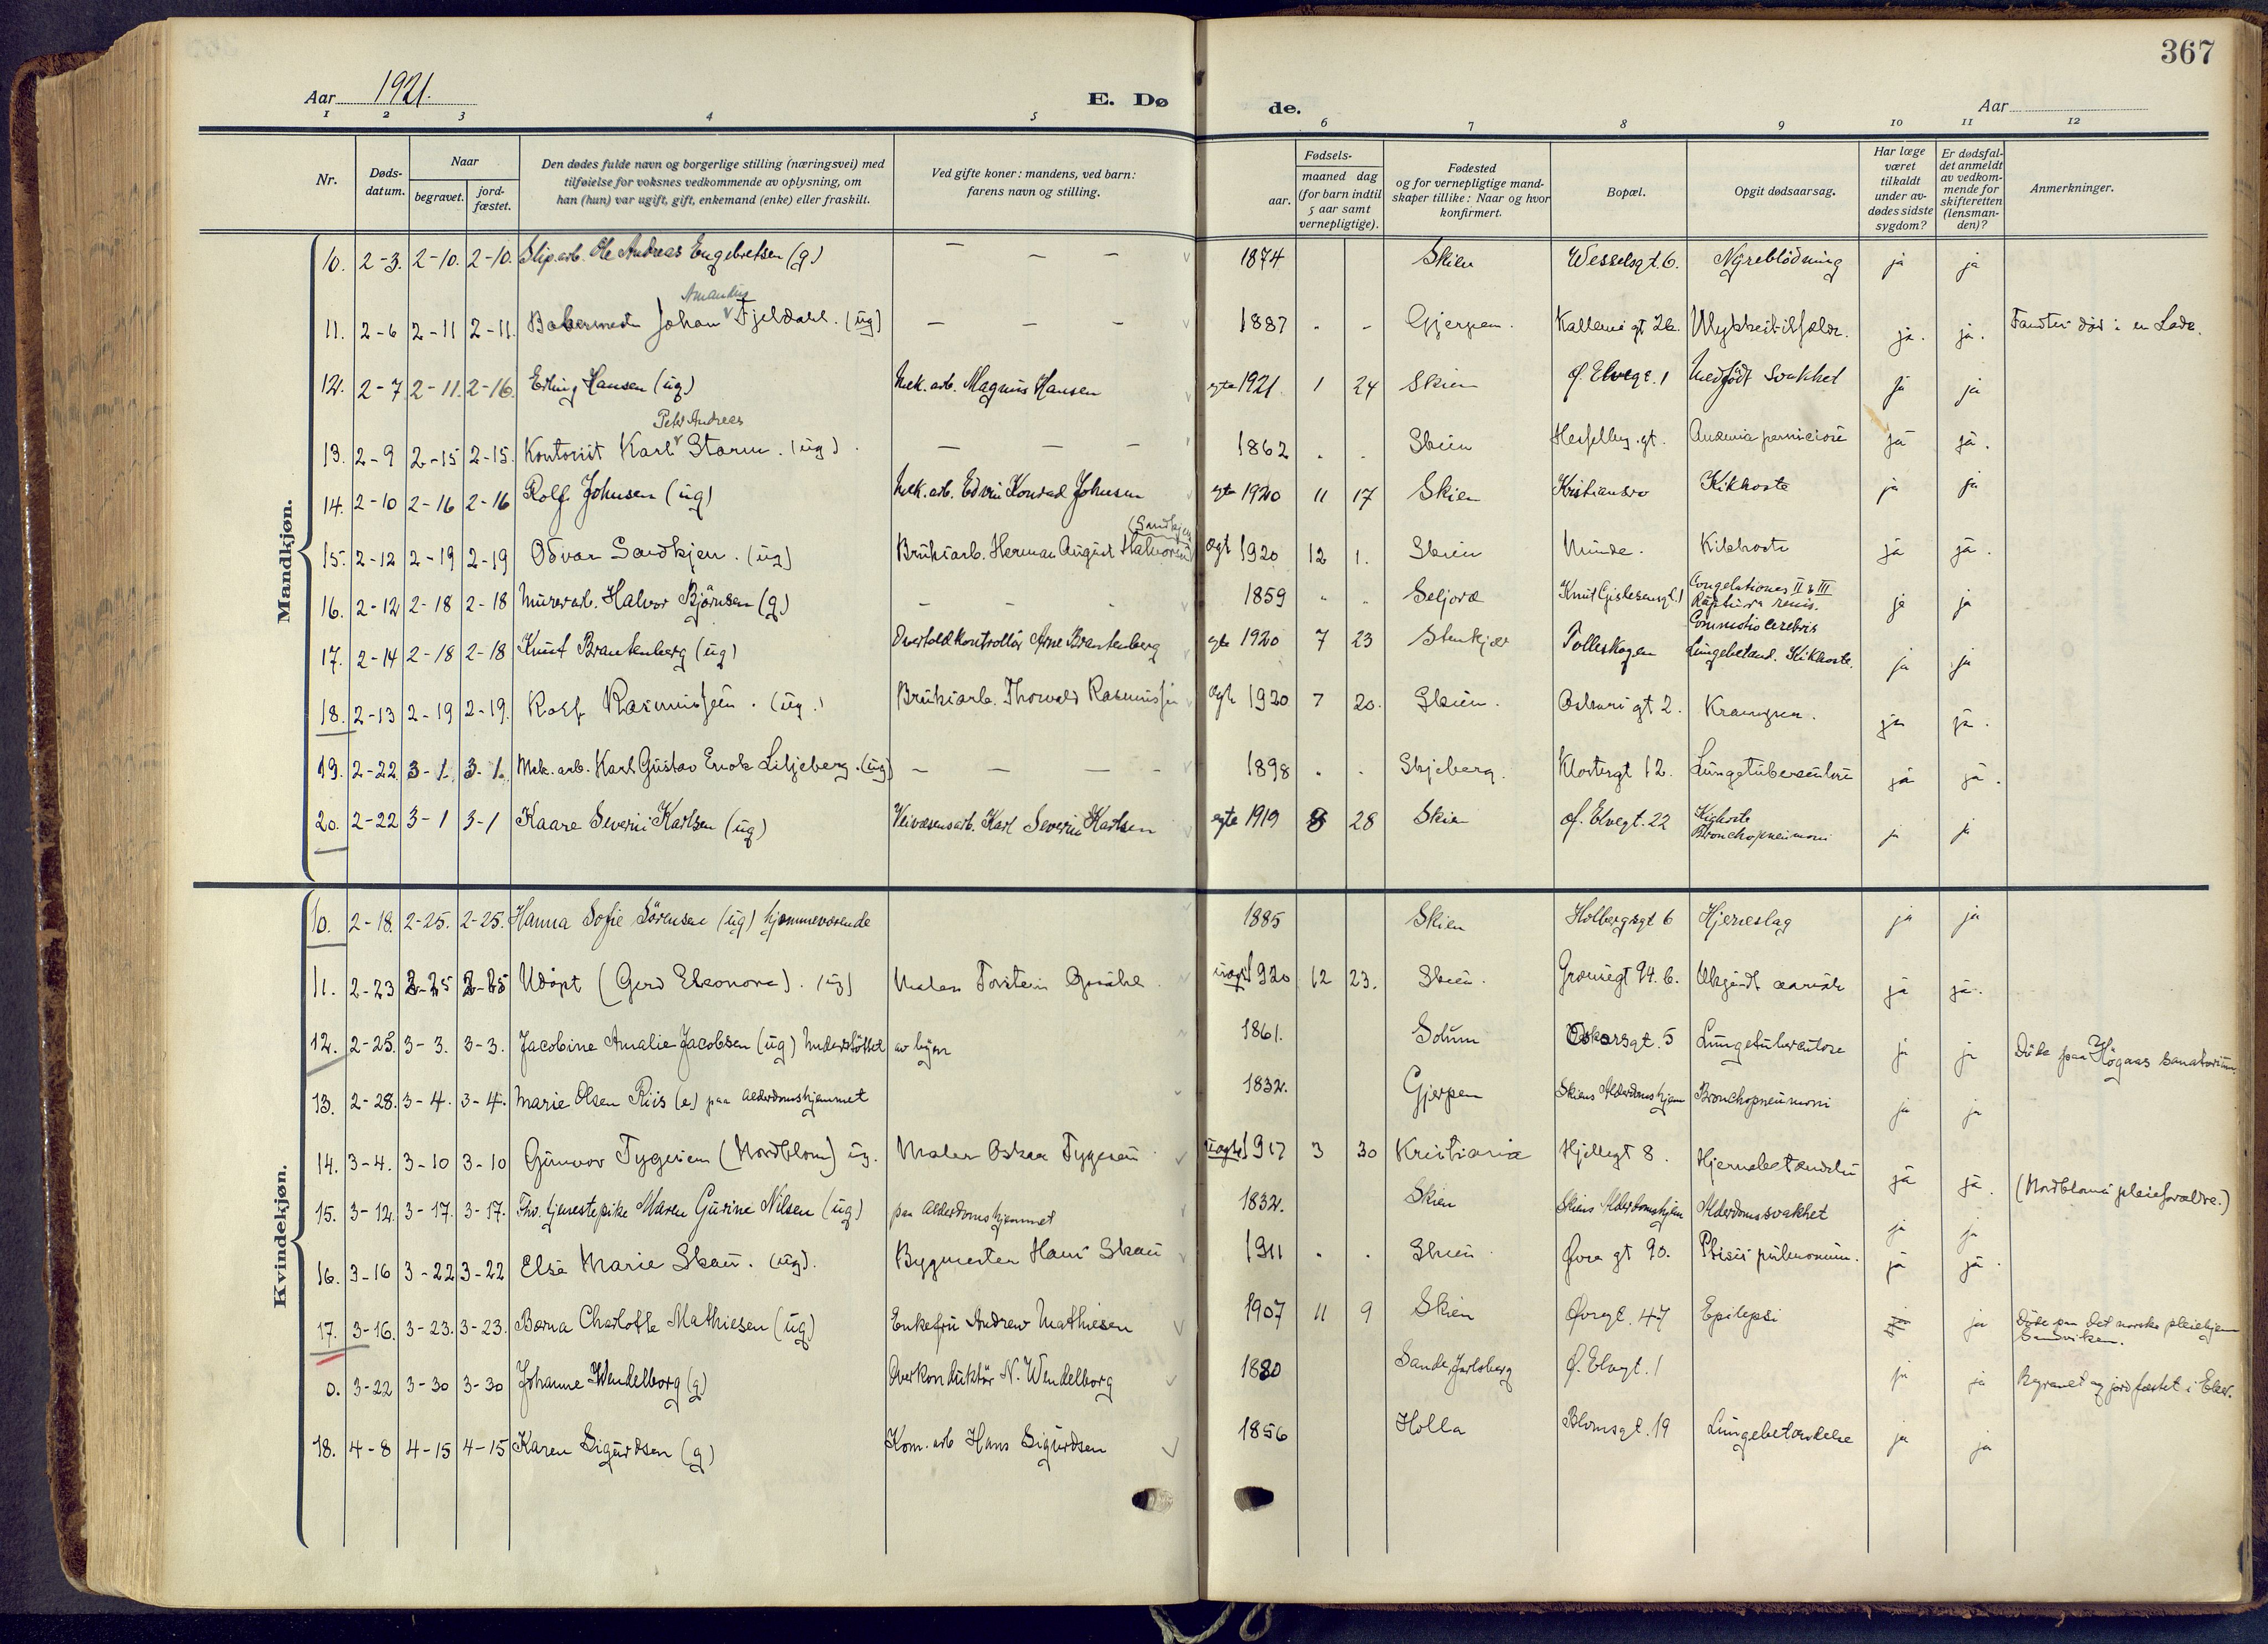 367
Aar 1921.
E. Døde.
Aar
1 2 3 4 5 6 7 8 9 10 11 12
Nr.
Døds-
datum.
Naar
begravet.
jord-
fæstet.
Den dødes fulde navn og borgerlige stilling (næringsvei) med
tilføielse for voksnes vedkommende av oplysning, om
han (hun) var ugift, gift, enkemand (enke) eller fraskilt.
Ved gifte koner: mandens, ved barn:
farens navn og stilling.
Fødsels-
aar.
maaned dag
(for barn indtil
5 aar samt
vernepligtige).
Fødested
og for vernepligtige mand-
skaper tillike: Naar og hvor
konfirmert.
Bopæl.
Opgit dødsaarsag.
Har læge
været
tilkaldt
under av-
dødes sidste
sygdom?
Er dødsfal-
det anmeldt
av vedkom-
mende for
skifteretten
(lensman-
den)?
Anmerkninger.
Mandkjøn.
10. 2-3. 2-10. 2-10. Slip.arb. Ole Andreas Engebretsen (g.) — — — 1874 Skien Wesselsgt. 6. Nyreblödning ja ja
Amandus
11. 2-6 2-11 2-11. Johan Fjeldahl. (ug) — — — 1887 Gjerpen. ja. ja. død i en Lade.
12. 2-7 2-11. 2-16. Erling Hansen (ug) Mek. arb. Magnus Hansen egte 1921 1 24 Skien Ø. Elvegt. 1 Medfödt Svakhet ja ja
Peter Andreas
13. 2-9 2-15 2-15. Kontorist Karl Storm. (ug) — — — 1862 Skien gt. ja ja.
14. 2-10 2-16 2-16 Rolf Johnsen (ug) Mek. arb. Edvin Konrad Johnsen egte 1920 11 17 Skien Kikhoste ja ja
(Sandkjen)
15. 2-12 2-19 2-19 Odvar Sandkjen. (ug) Bruksarb. Herman August Halvorsen ægt 1920 12 1. Skien Kikhoste ja ja.
16. 2-12 2-18 2-18 Murerarb. Halvor Björnsen (g.) — — 1859 Seljord Knut Gislesensgt. 1 Congelationes II & III
Ruptura renis.
Commotio cerebris ja ja
17. 2-14 2-18 2-18 Knut Brantenberg (ug) Overtoldkontrollör Arne Brantenberg egte 1920 7 23 Stenkjær Lungebetænd. Kikhoste. ja ja
18. 2-13 2-19 2-19. Rolf Rasmussen. (ug.) Bruksarb. Thorvald Rasmussen ægte 1920 7 20. Skien. gt 2. Kramper. ja ja.
19. 2-22 3-1. 3-1. Mek. arb. Karl Gustav Liljeberg. (ug) — — — — 1898 Skjeberg. Klostergt 12. Lungetuberculose ja ja.
20. 2-22 3-1 3-1 Kaare Severin Karlsen (ug) Veivæsensarb. Karl Severin Karlsen egte 1919 8 28 Skien Ø. Elvegt. 22 Kighoste
Bronchopneumoni ja ja
Kvindekjøn.
10. 2-18. 2-25. 2-25. Hanna Sofie Sörensen (ug) hjemmeværende 1885 Skien Holbergsgt 6 Hjerneslag ja ja
11. 2-23 2-25 2-25 Udöpt (Gerd Eleonora). (ug) Maler Torstein uægt 1920 12 23. Skien. ja ja.
12. 2-25. 3-3. 3-3. Jacobine Amalie Jacobsen (ug) Understöttet av byen 1861. Solum Oskarsgt. 5 Lungetuberculose ja ja Döde paa Högaas sanatorium.
13. 2-28. 3-4. 3-4. Marie Olsen Riis (e.) paa Alderdomshjemmet 1832. Gjerpen Skiens Alderdomshjem Bronchopneumoni ja ja
14. 3-4. 3-10 3-10 Gunvor Tygesen (Nordblom) ug. Maler Oskar Tygesen uægte 1917 3 30 Kristiania Hjellegt 8. ja ja. (Nordbloms pleieforældre.)
15. 3-12. 3-17. 3-17. Fhv. tjenestepike Maren Gurine Nilsen (ug) paa Alderdomshjemmet 1832. Skien Skiens Alderdomshjem Alderdomssvakhet ja ja
16. 3-16 3-22 3-22 Else Marie Skau. (ug). Bygmester Hans Skau 1911 Skien Øvre gt 90. Ptisis pulmonum. ja ja.
17. 3-16. 3-23. 3-23. Borna Charlotte Mathiesen (ug) Enkefru Andrew Mathiesen 1907 11 9 Skien Øvregt. 47 Epilepsi ja Döde paa det norske pleiehjem
Sandviken.
0. 3-22 3-30 3-30 Johanne Wendelborg (g) Overkonduktör N. Wendelborg 1880 Sande, Jarlsberg Ø. Elvegt. 1 ja ja Begravet og jordfæstet i
18. 4-8 4-15 4-15 Karen Sigurdsen (g) Kom. arb Hans Sigurdsen 1856 Holla Blomsgt. 19 Lungebetændelse ja ja